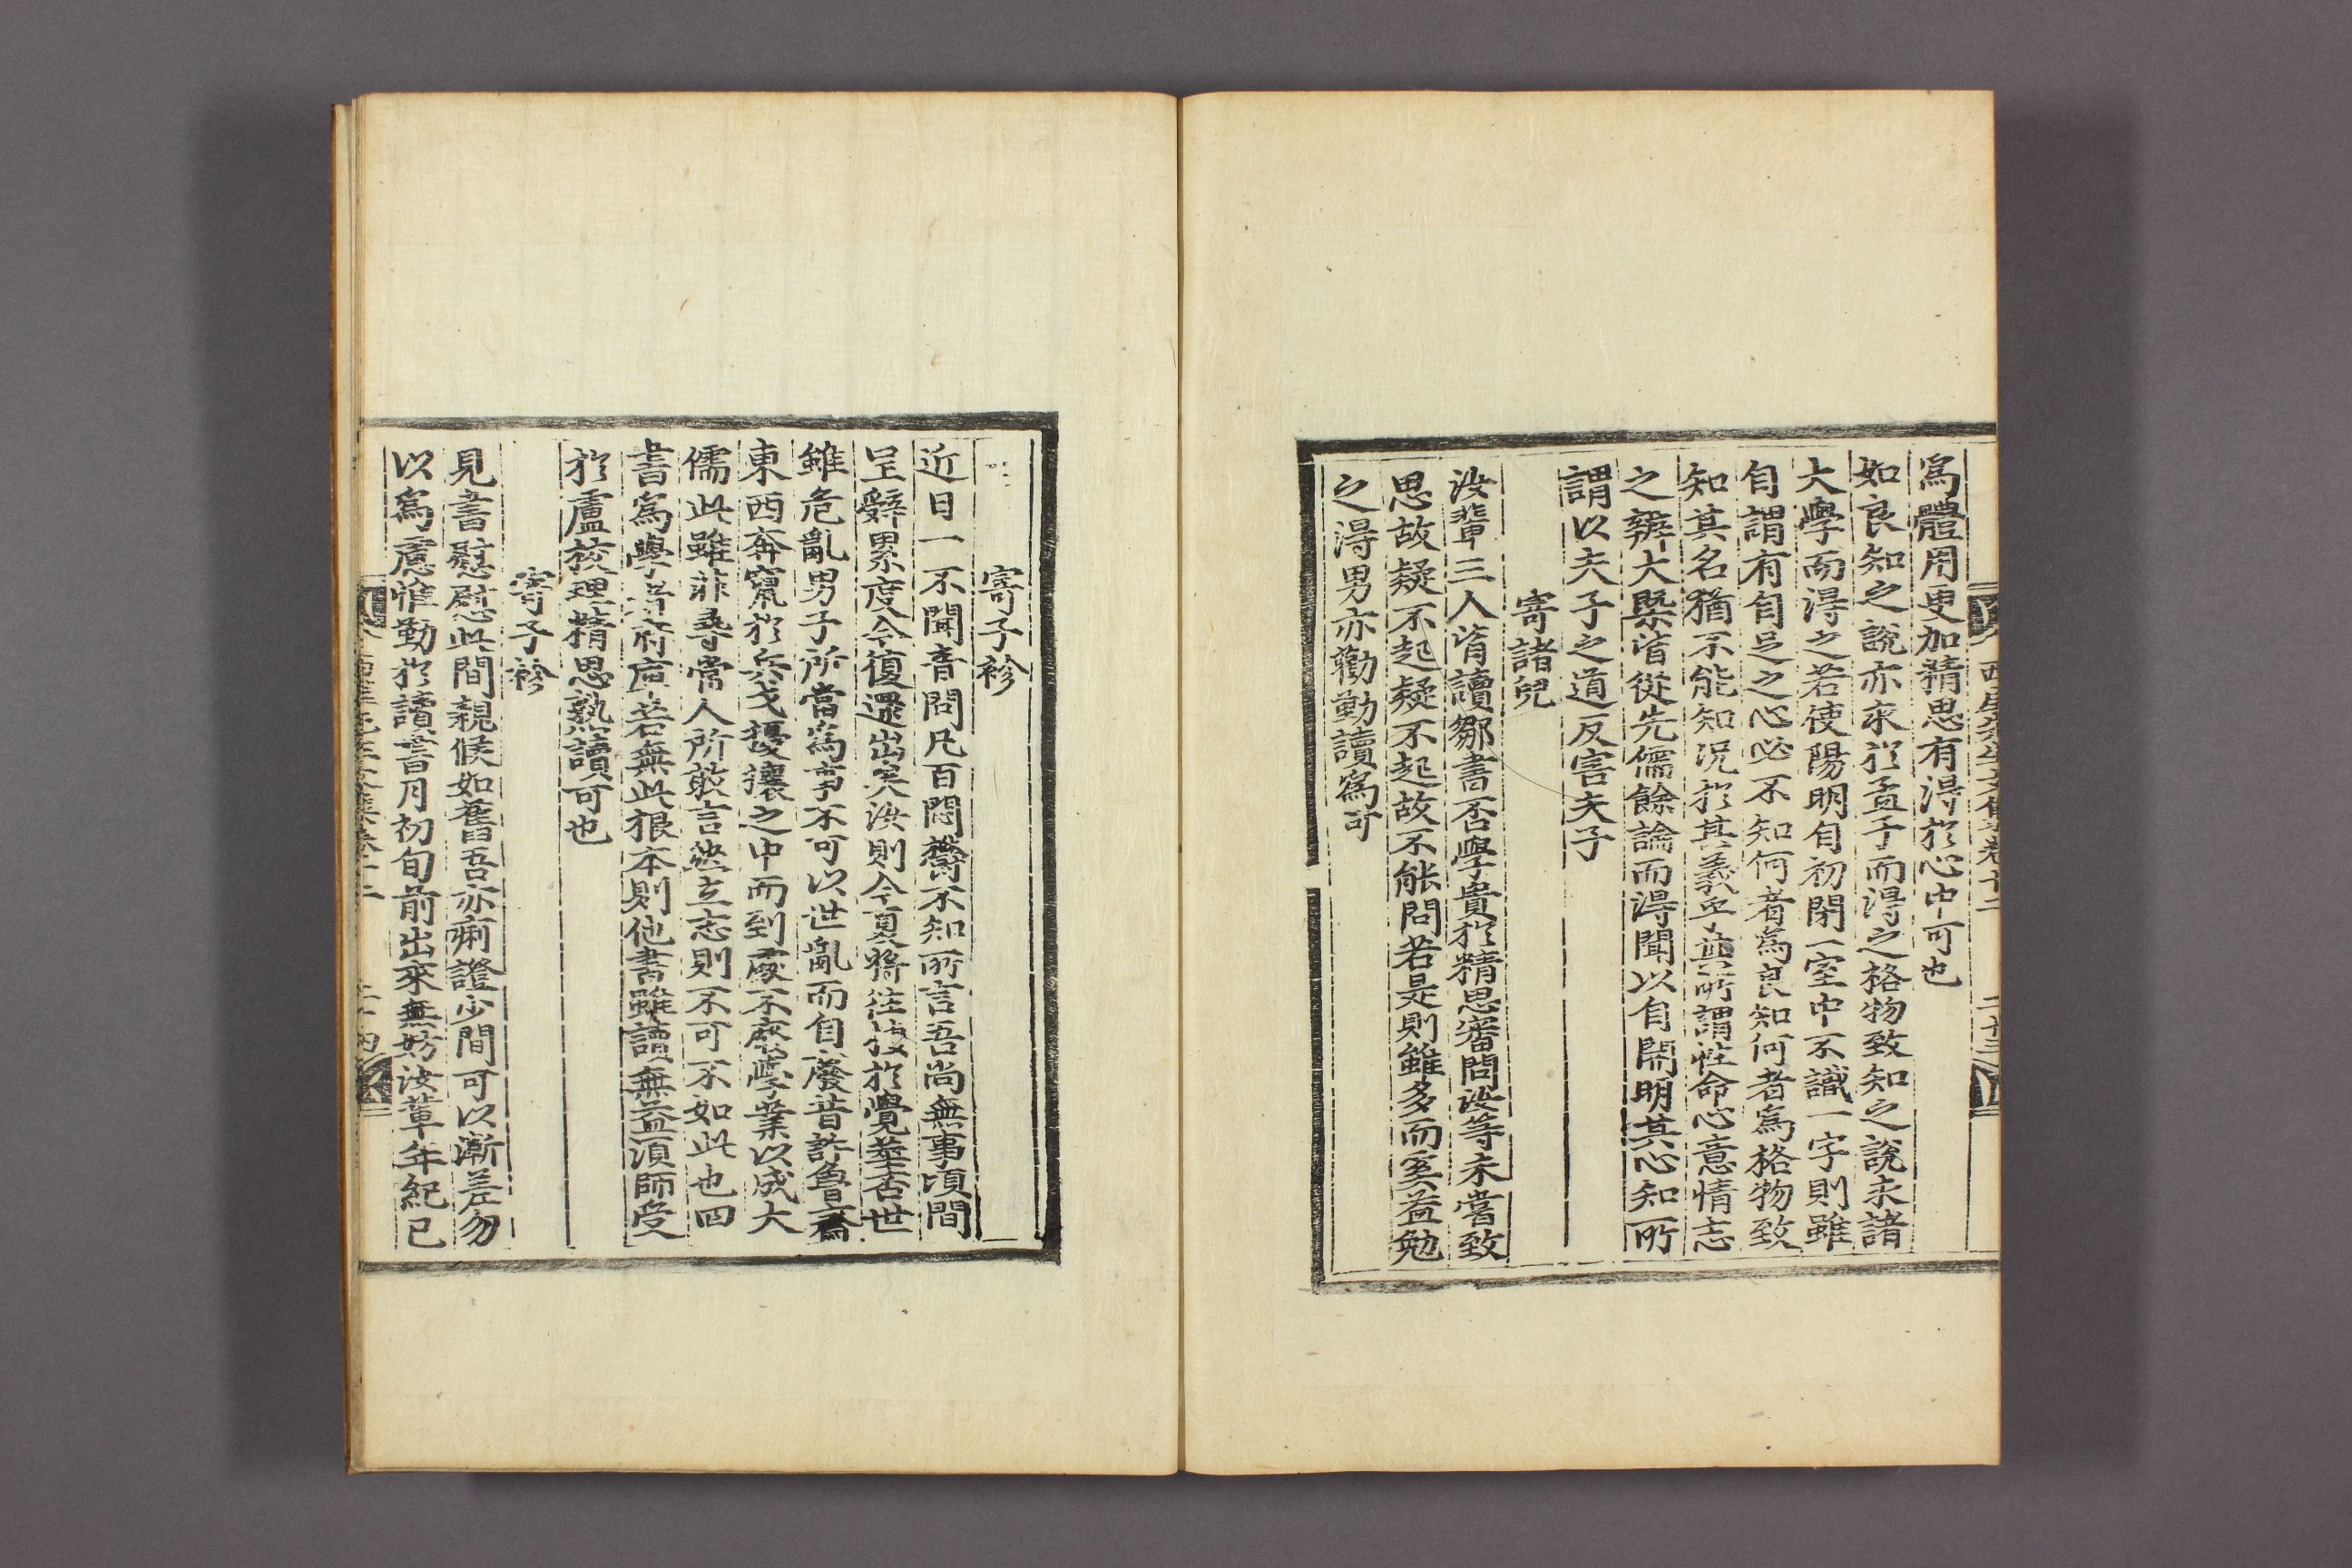 爲體用更加精思有得於心中可也
如良知之說亦求於孟子而得之格物致知之說求諸
大學而得之若使陽明自初閉一室中不識一字則雖
自謂有自㠯之心必不知何者爲良知何者爲格物致
知其名猶不能知況於其義乎其所謂性命心意情志
之辨大槩皆從先儒餘論而得聞以自開明其心知所
謂以夫子之道反害夫子
寄諸兒
汝輩三人皆讀鄒書否學貴於精思審問汝等未嘗致
思故疑不起疑不起故不能問若是則雖多而奚益勉
之得男亦勸勤讀爲可
寄子袗
近日一不聞音問凡百悶欝不知所言吾尚無事頃間
呈辭累度今復還出矣汝則今夏將往接於覺華否世
雖危亂男子所當爲事不可以世亂而自廢昔許魯齋
東西奔竄於兵戈擾攘之中而到處不廢學業以成大
儒此雖非尋常人所敢言然立志則不可不如此也四
書爲學者府庫若無此根本則他書雖讀無益須師受
於盧校理精思熟讀可也
寄子袗
見書慰慰此間親候如舊吾亦痢證少間可以漸差勿
以爲慮惟勤於讀書月初旬前出來無妨汝輩年紀已